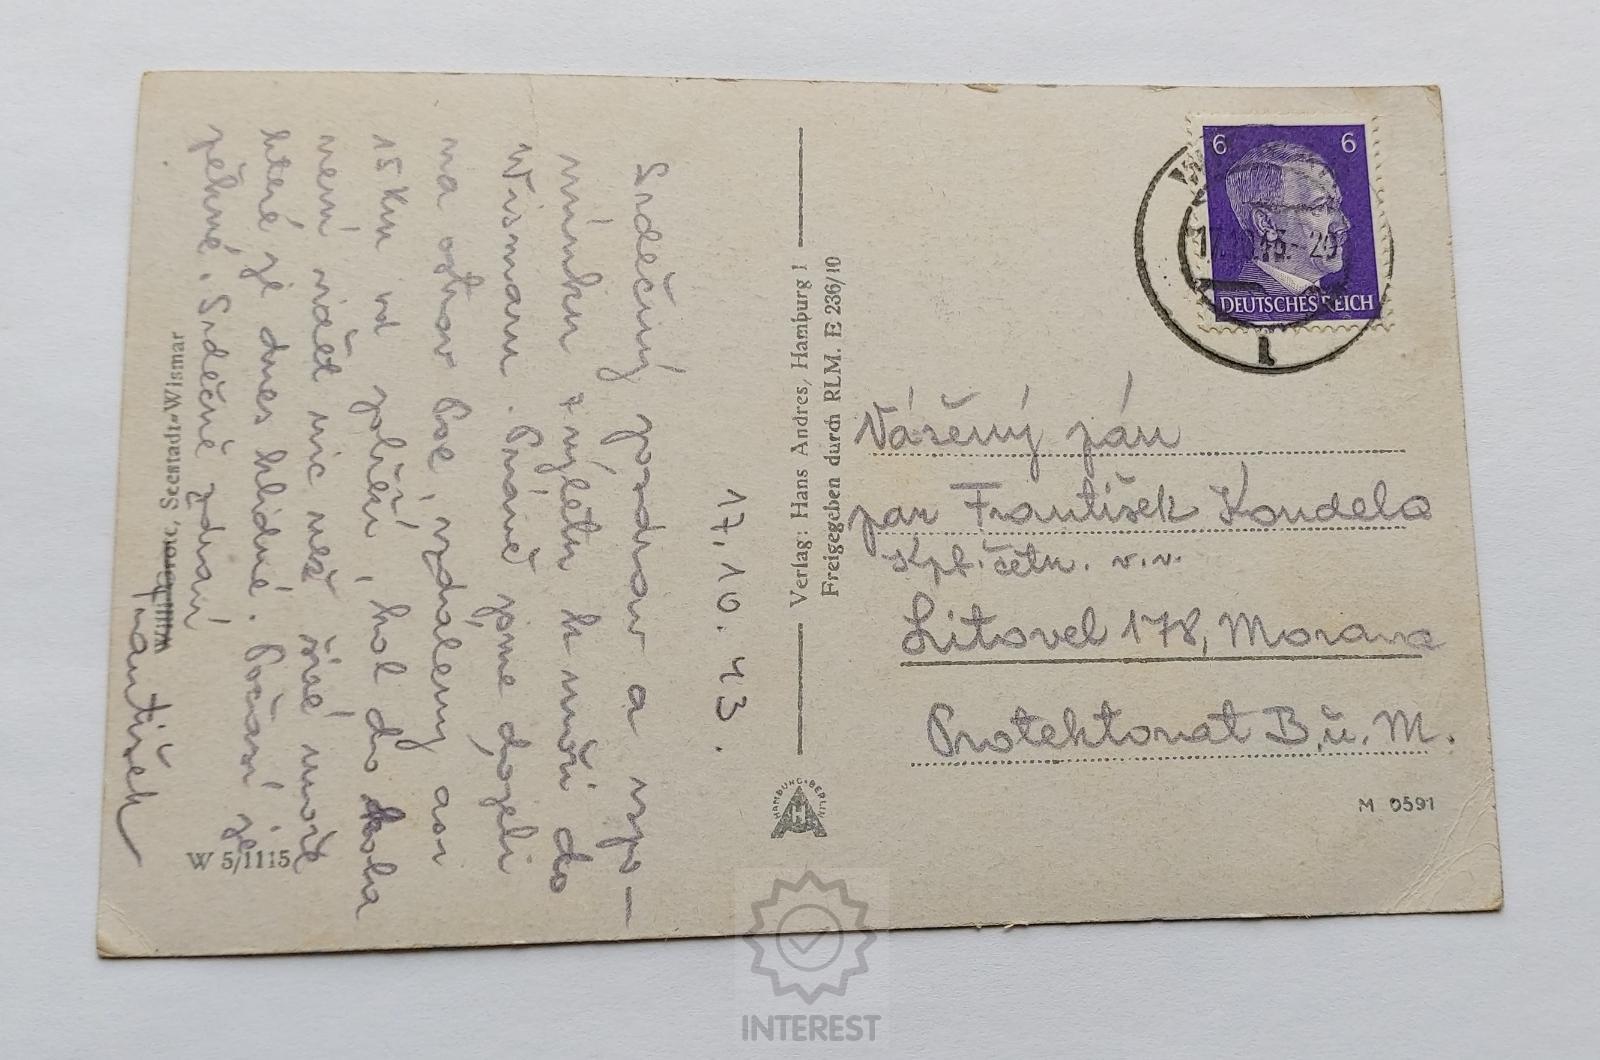 17.10.43.
Srdečný pozdrav a vzpo-
mínku z výletu k moři do
Wismaru. Právě jsme dojeli
na ostrov Poel, vzdálený asi
15 km od pobřeží, kol do kola
není vidět nic než širé moře
které je dnes klidné. Počasí je
pěkné. Srdečně zdraví
František
Seestadt-Wismar
W 5/1115
Verlag: Hans Andres, Hamburg 1
Freigegeben durch RLM. E 236/10
HAMBURG-BERLIN
HA
6 6
DEUTSCHES REICH
Vážený pán
pan František Koudela
Kpt. četn. v.v.
Litovel 178, Morava
Protektorat B.u. M.
M 0591
INTEREST